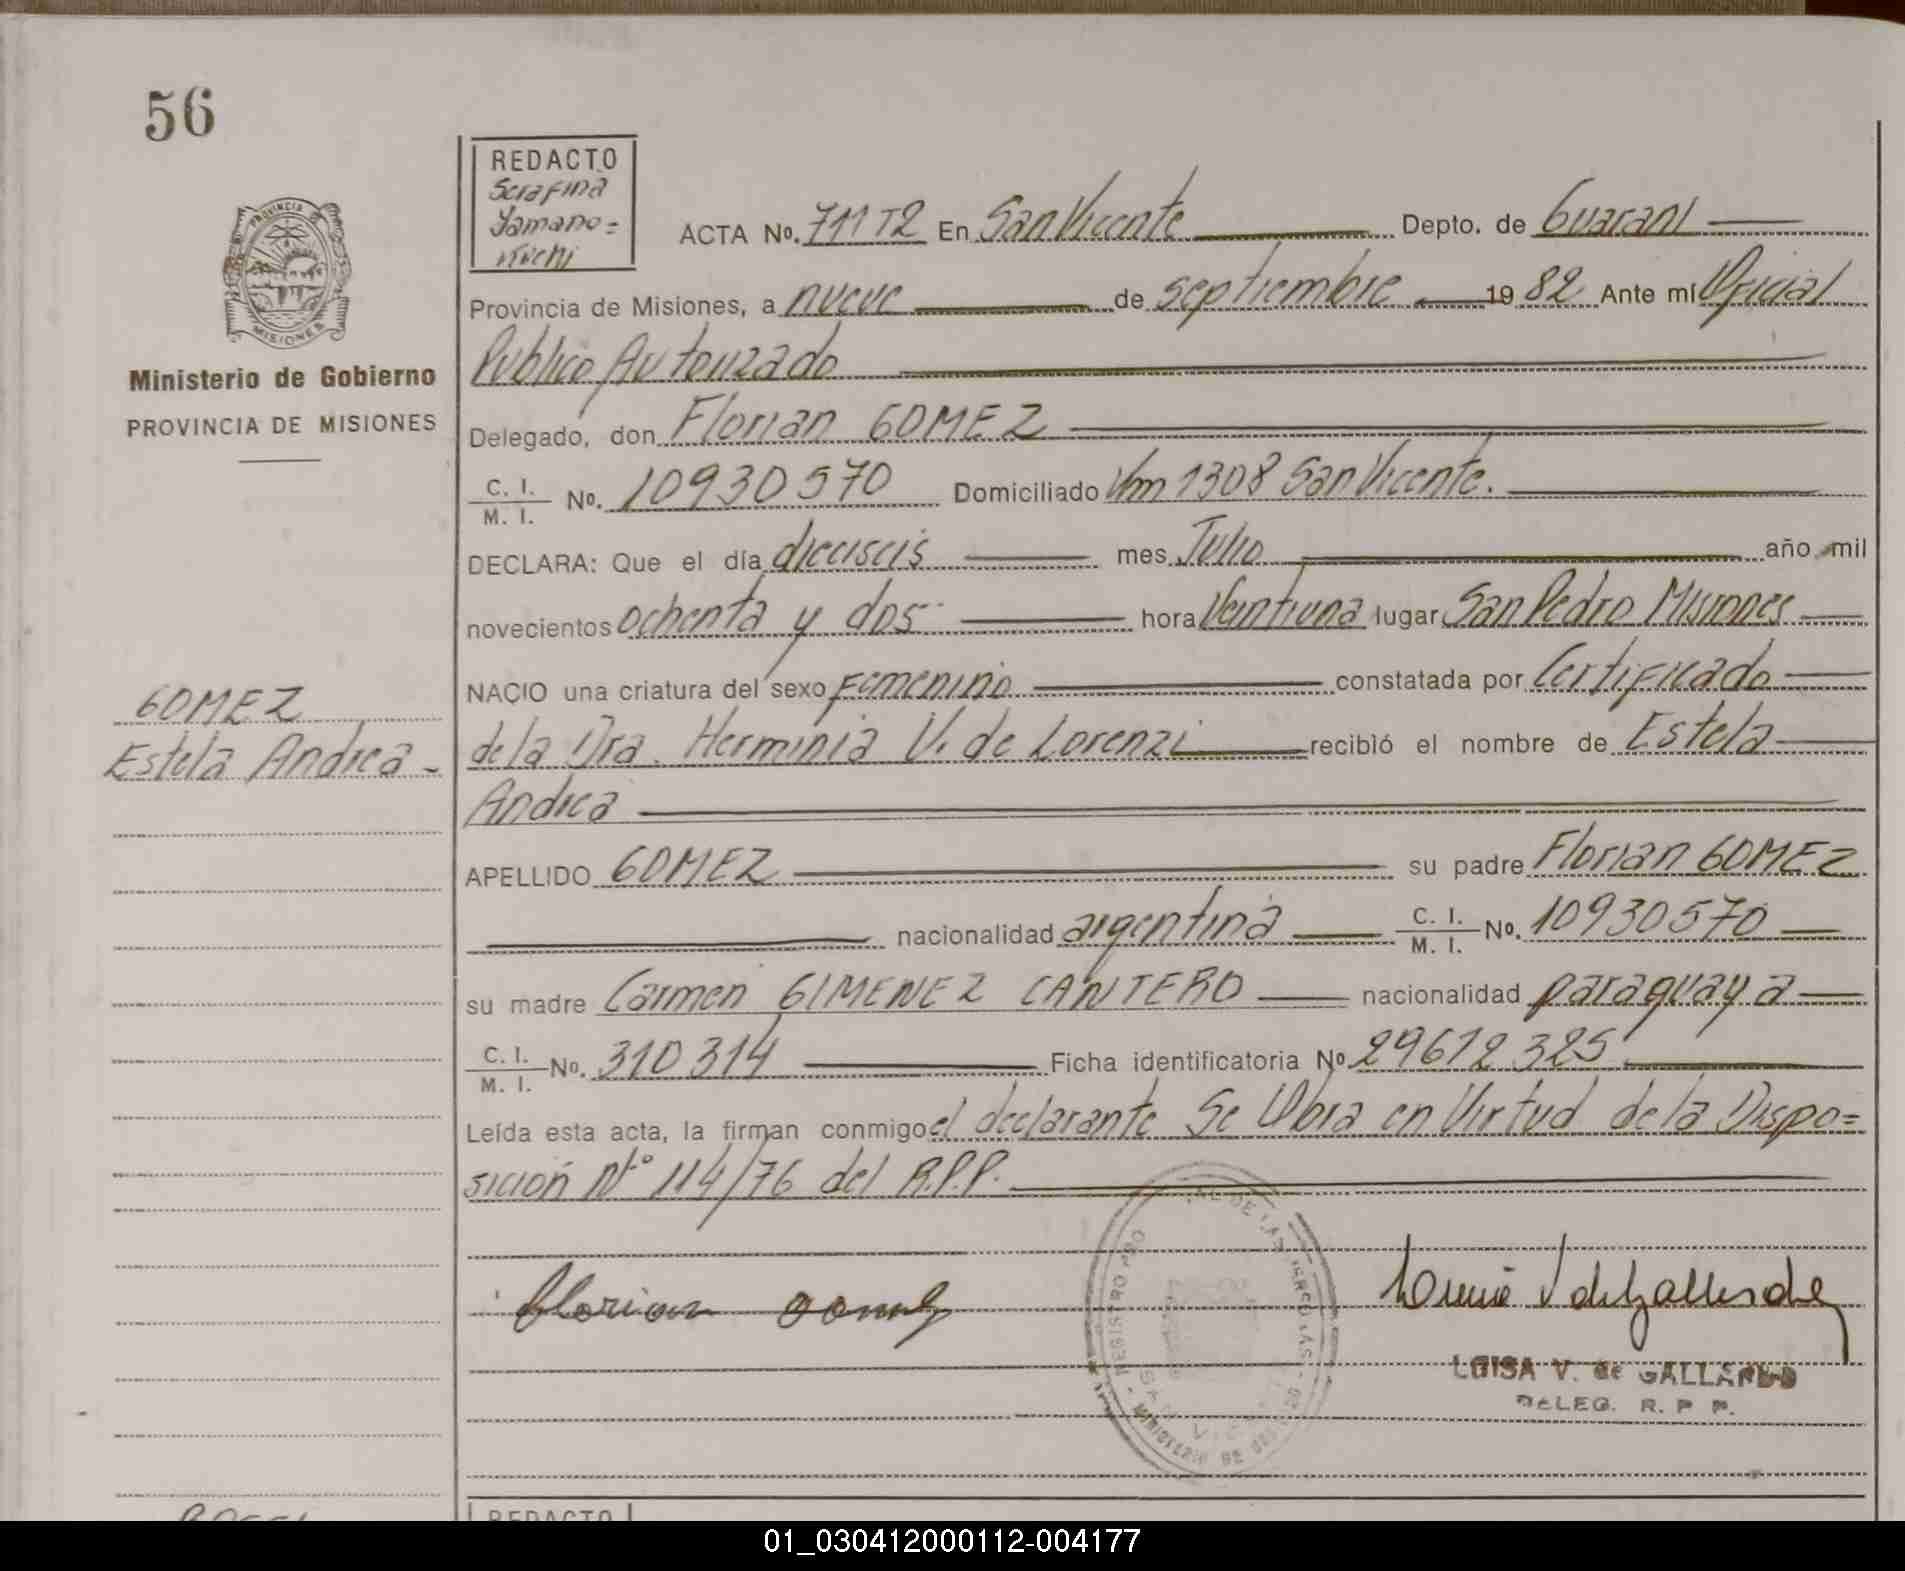 56
REDACTO
Serafina
Yamano=
uichi
PROVINCIA
MISIONES
Ministerio de Gobierno
PROVINCIA DE MISIONES
ACTA No. 711T2 En San Vicente Depto. de Guaraní
Provincia de Misiones, a nueve de septiembre 1982 Ante mí Oficial
Publico Autorizado
Delegado, don Florian GOMEZ
C. I. / M. I. No. 10930570 Domiciliado Km 1308 San Vicente.
DECLARA: Que el día dieciseis mes Julio año mil
novecientos ochenta y dos hora Veintiuna lugar San Pedro Misiones
NACIO una criatura del sexo Femenino constatada por Certificado
de la Dra. Herminia V. de Lorenzi recibió el nombre de Estela
Andrea
GOMEZ
Estela Andrea -
APELLIDO GOMEZ su padre Florian GOMEZ
nacionalidad argentina C. I. / M. I. No. 10930570
su madre Carmen GIMENEZ CANTERO nacionalidad paraguaya
C. I. / M. I. No. 310314 Ficha identificatoria No 29612325
Leída esta acta, la firman conmigo el declarante Se Obra en Virtud de la Dispo=
sición Nº 114/76 del R.P.P.
Florian Gomez
LUISA V. de GALLARDO
DELEG. R. P. P.
REDACTO
01_030412000112-004177